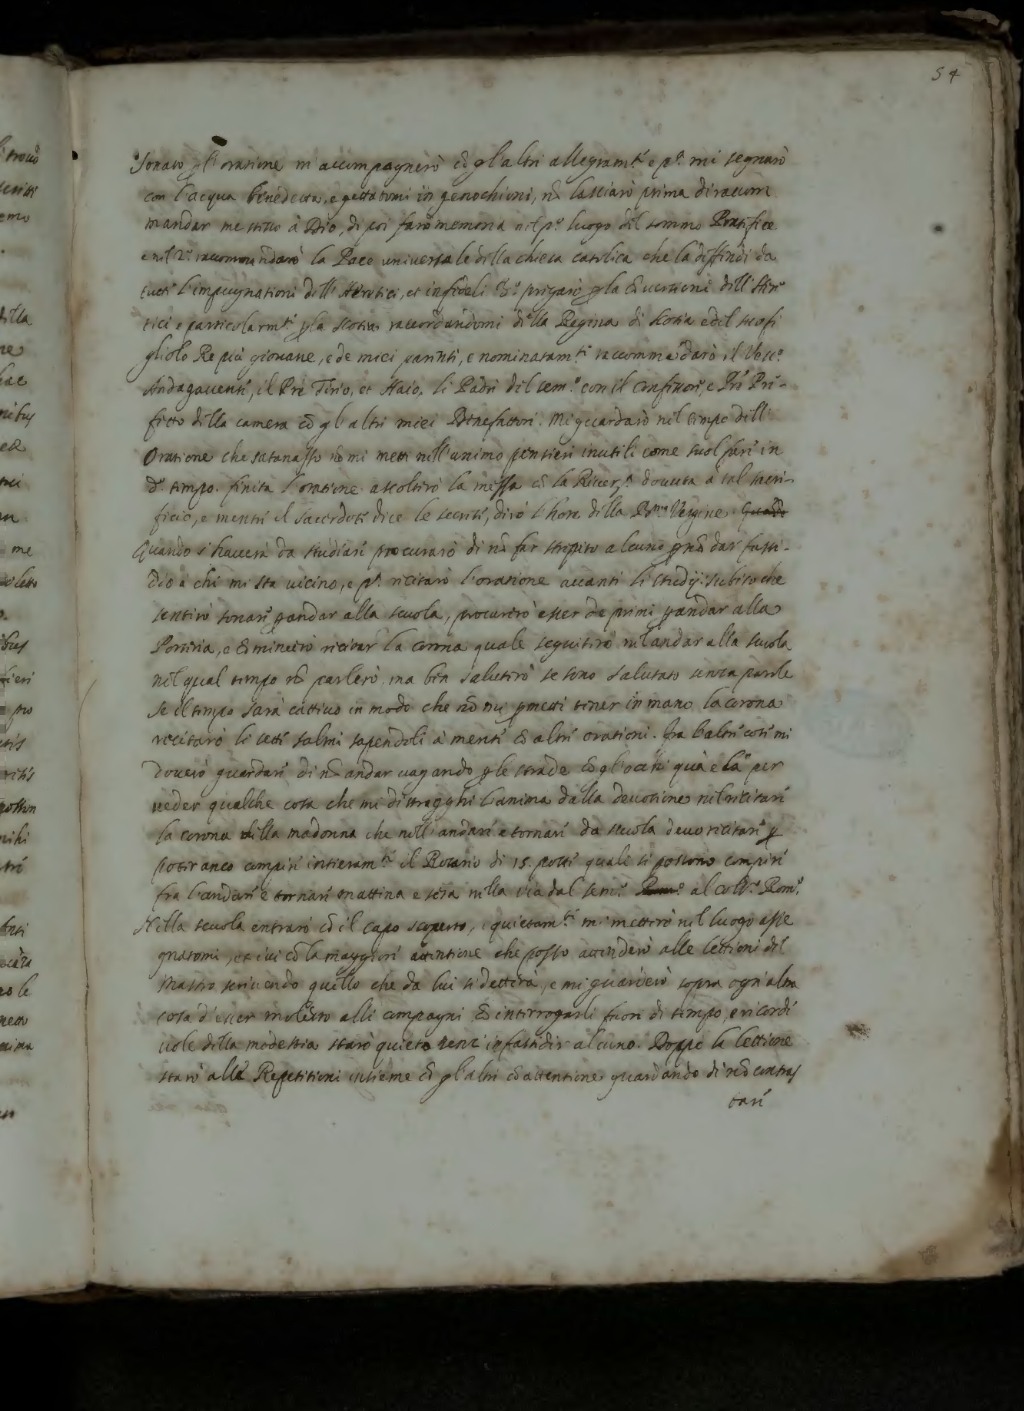 54
Sonato p l'oratione m'accompagnerò cō gl'altri allegramte e po mi segnarò
con l'acqua benedetta, e gettatomi in genochioni, nō lasciarò prima di racom
mandar me stesso à Dio, di poi farò memoria nel po luogo del sommo Pontifice
e nel 2o raccommandarò la Pace universale della chiesa catolica che la diffendi da
tutti l'impugnationi dell'Heretici, et infideli 3o pregarò p la cōversioni dell'Here
tici e particolarmte p la Scotia raccordandomi della Regina di Scotia e del suo fi
gliolo Re più giovane, e de miei parenti, e nominatamte raccommādarò il Vesco
Andagavensi, il Pre Tirio, et Haio, li Padri del semo con il confessore, e Pre Pre-
fetto della camera cō gl'altri miei Benefattori. Mi guardarò nel tempo dell'
Oratione che satanasso nō mi metti nell'animo pensieri inutili come suol fari in
do tempo. finita l'oratione ascoltirò la messa cō la River.a dovuta à tal sacri-
ficio, e mentri il sacerdoti dice le secreti, dirò l'hore della Bma Vergine. Quādo
Quando s'haverà da studiari procurarò di nō far strepito alcuno p nō dar fasti-
dio à chi mi sta vicino, e po recitarò l'oratione avanti li studij. Subito che
sentirò sonari p andar alla scuola, procurirò esser de primi p andar alla
Portiria, e cōmincirò recitar la corona quale seguitirò nel andar alla scuola
nel qual tempo nō parlerò ma bēn salutirò se sono salutato senza parole
Se il tempo sarà cattivo in modo che nō mi pmetti tiner in mano la corona
recitarò li setti salmi sapendoli à menti cō altri orationi. fra l'altri cosi mi
doverò guardari di nō andar vagando p le strade cō gl'occhi quà e là per
veder qualche cosa che mi distragghi l'anima dalla devotione nel recitari
la corona della madonna che nell'andari e tornari da scuola devo recitari p
potir anco compiri intieramte il Rosario di 15. posti quale si possono compiri
fra l'andari e tornari mattina e sera nella via dal semo Romo al collo Romo.
Nella scuola entrarò cō il capo scoperto, e quietamte mi mettirò nel luogo asse
gnatomi, et ivi cō la maggiori attentione che posso attenderò alle lettioni del
Mastro scrivendo quello che da lui si detterà, e mi guarderò sopra ogn'altra
cosa d'esser molesto alli compagni cō interrogarli fuori di tempo, e ricordi
vole della modestia starò quieto senz'infastidir alcuno. Doppo la lettione
starò alla Repetitioni insieme cō gl'altri cō attentione guardando di nō contras
tari